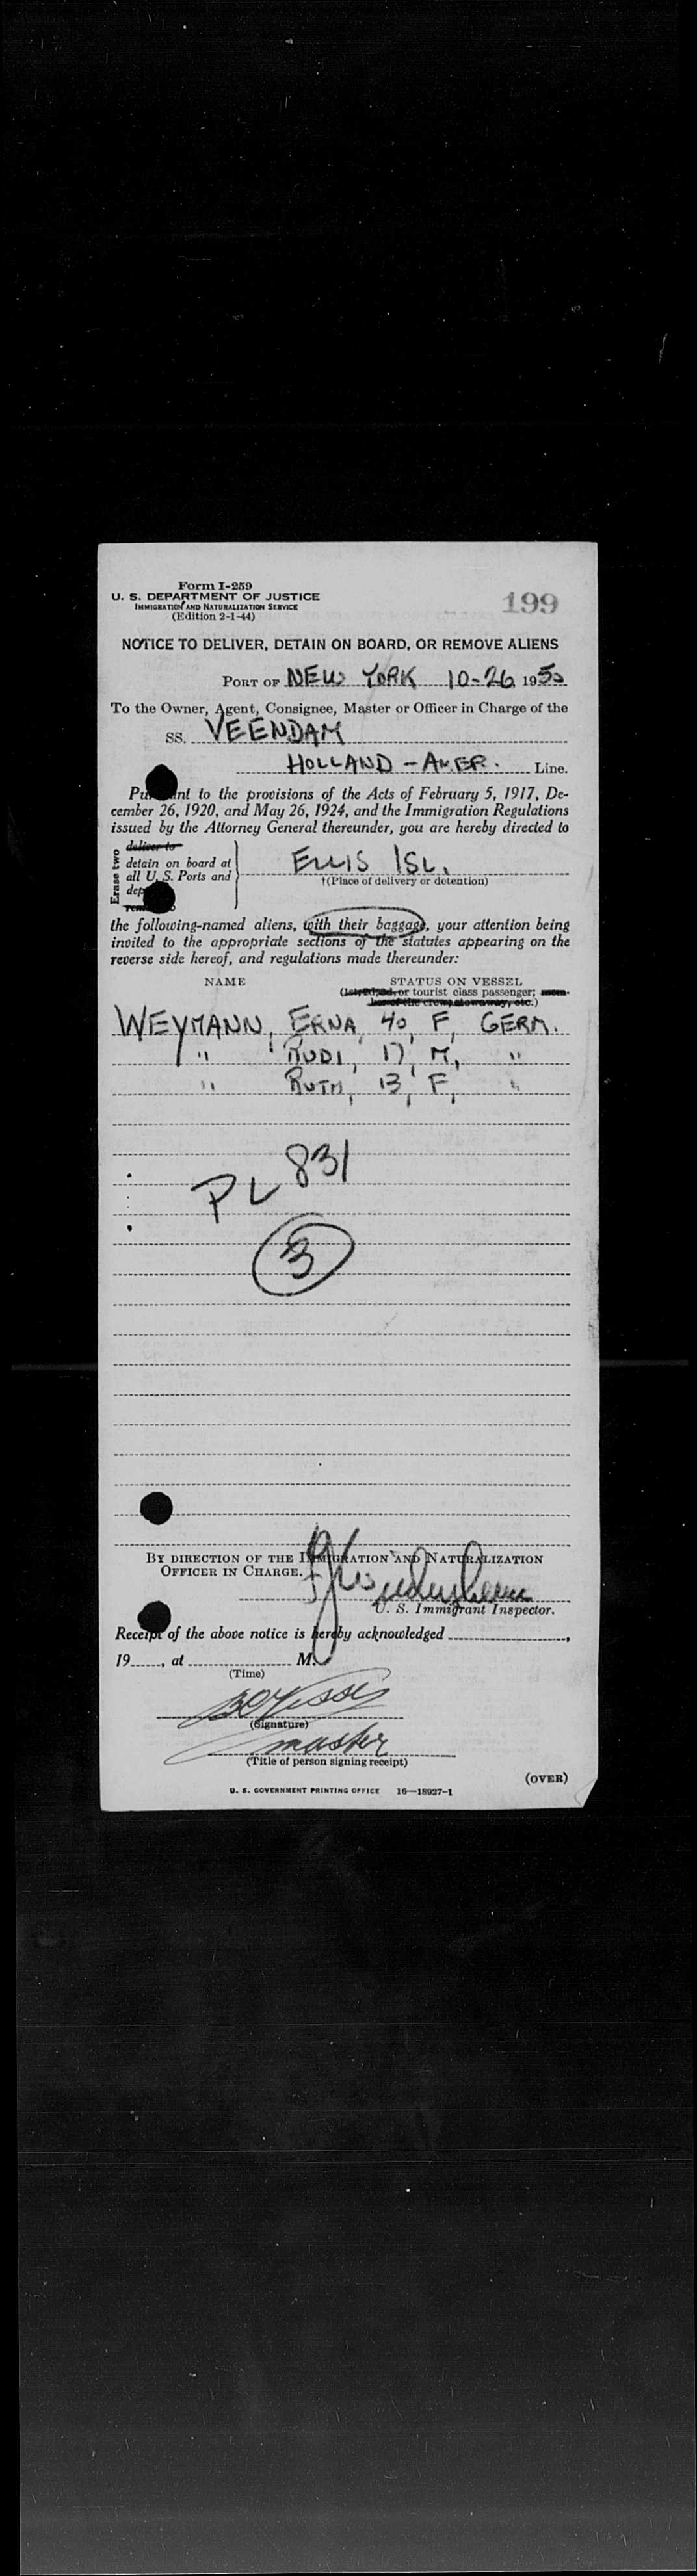 Form I-259
U. S. DEPARTMENT OF JUSTICE
IMMIGRATION AND NATURALIZATION SERVICE
(Edition 2-1-44)
199
NOTICE TO DELIVER, DETAIN ON BOARD, OR REMOVE ALIENS
PORT OF NEW YORK 10-26, 1950
To the Owner, Agent, Consignee, Master or Officer in Charge of the
SS. VEENDAM
HOLLAND - AMER. Line.
Pursuant to the provisions of the Acts of February 5, 1917, De-
cember 26, 1920, and May 26, 1924, and the Immigration Regulations
issued by the Attorney General thereunder, you are hereby directed to
Erase two
deliver to
detain on board at
all U. S. Ports and
ELLIS ISL.
†(Place of delivery or detention)
the following-named aliens, with their baggage, your attention being
invited to the appropriate sections of the statutes appearing on the
reverse side hereof, and regulations made thereunder:
NAME STATUS ON VESSEL
or tourist class passenger;
WEYMANN, ERNA, 40, F, GERM.
" RUDI, 17, M, "
" RUTH, 13, F, "
PL 831
3
BY DIRECTION OF THE IMMIGRATION AND NATURALIZATION
OFFICER IN CHARGE.
U. S. Immigrant Inspector.
Receipt of the above notice is hereby acknowledged
19 , at M.
(Time)
(Signature)
master
(Title of person signing receipt)
(OVER)
U. S. GOVERNMENT PRINTING OFFICE 16—18927-1